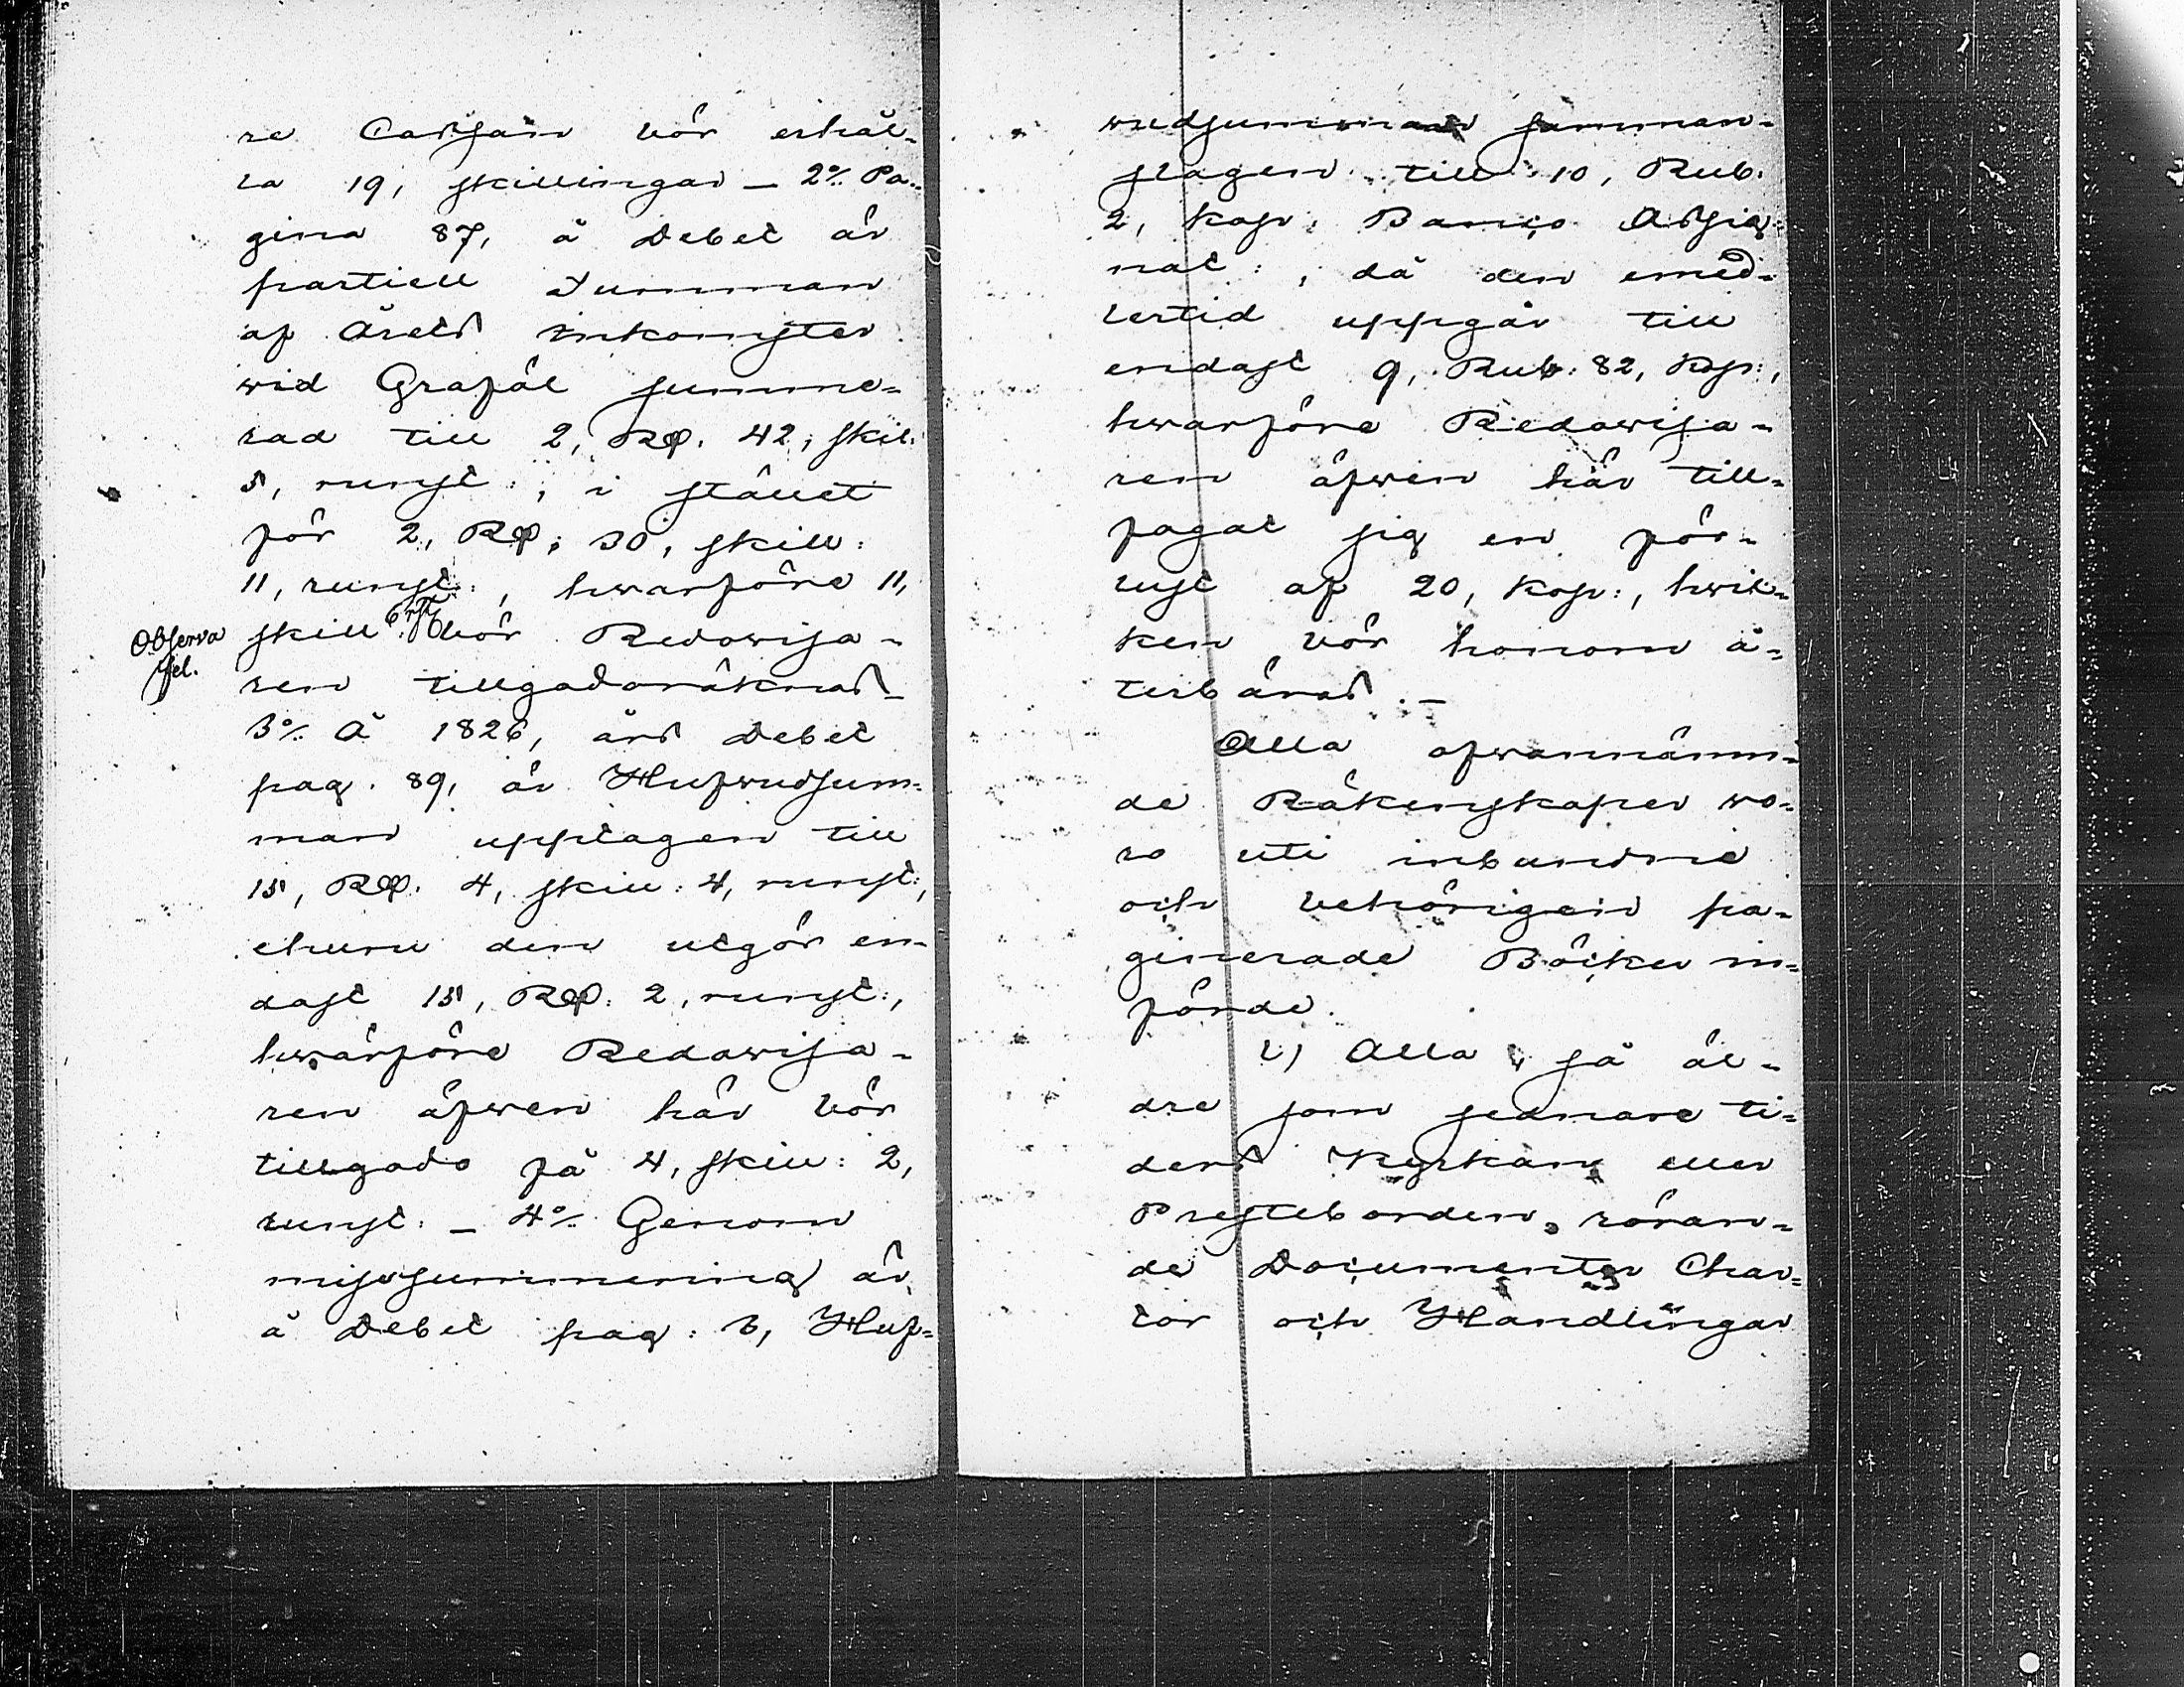 re Cassan bör erhål-
la 19, skillingar – 2% Pa-
gina 87, å Debet är
partiell Summan
af Årets inkomster
wid Graföl summe-
rad till 2, Rp. 42, skil:
5, runst:, i stället
för 2, Rp: 30, skill:
11, runst:, hwarföre 11,
skill: 6 rst: bör Redowisa-
Observa
fel.
ren tillgodoräknas –
3% Å 1826, års Debet
pag. 89, är Hufwudsum-
man upptagen till
15, Rp. 4, skill: 4, runst:,
ehuru den utgör en-
dast 15, Rp: 2, runst:,
hwarföre Redowisa-
ren äfwen här bör
tillgodo få 4, skill: 2,
runst: – 4% Genom
missummering är
å Debet pag: 3, Huf-
wudsumman samman-
slagen till 10, Rub.
2, kop: Banco Assig-
nat:, då den emed-
lertid uppgår till
endast 9, Rub: 82, kop:,
hwarföre Redowisa-
ren äfwen här till-
fogat sig en för-
lust af 20, kop:, hwil-
ken bör honom å-
terbäras. –
Alla ofwannämn-
de Räkenskaper wo-
ro uti inbundne
och behörigen pa-
ginerade Böcker in-
förde.
l) Alla så äl-
dre som sednare ti-
ders Kyrkan eller
Presteborden röran-
de Documenter Char-
tor och Handlingar